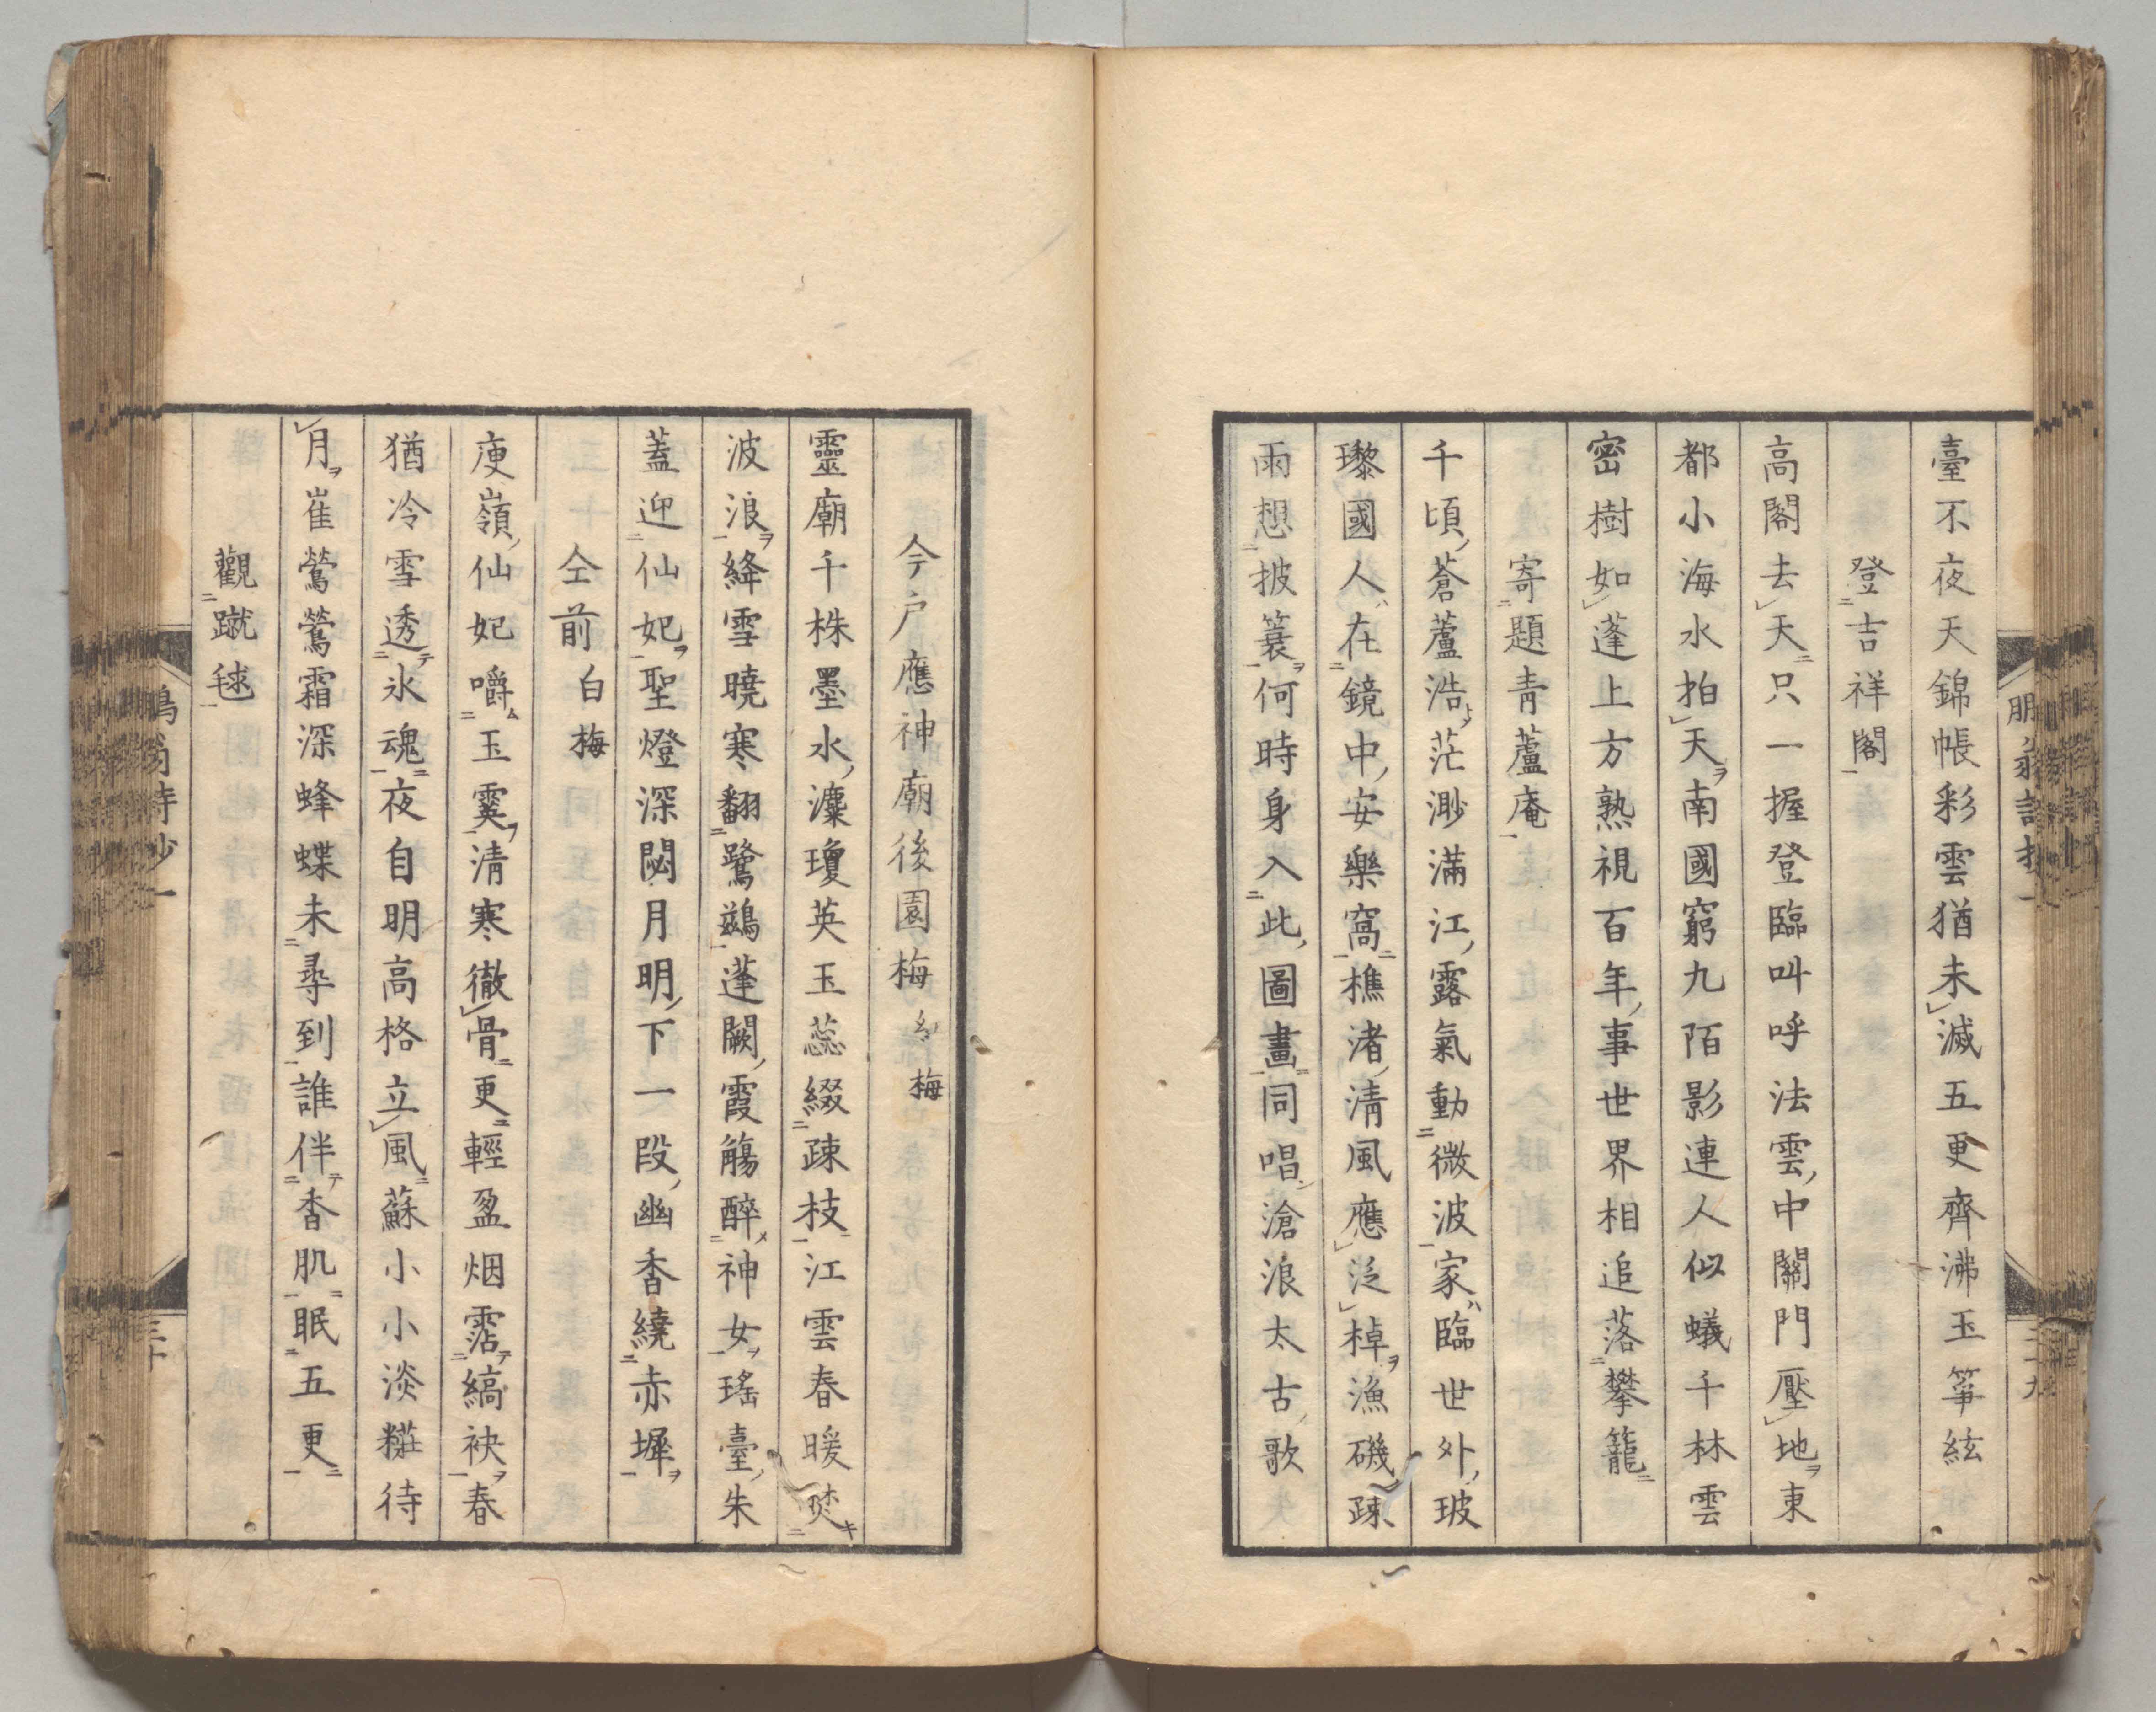 臺不夜天錦帳彩雲猶未滅五更齊沸玉箏絃
登吉祥閣
高閣去天只一握登臨叫呼法雲中關門壓地東
都小海水拍天南國窮九陌影連人似蟻千林雲
密樹如蓬上方熟視百年事世界相追落攀籠
寄題青蘆庵
千頃蒼蘆浩茫渺滿江露氣動微波家臨世外玻
瓈國人在鏡中安樂窩樵渚清風應泛棹漁磯疎
雨想披簑何時身入此圖畫同唱滄浪太古歌
今户應神廟後園梅 紅梅
靈廟千株墨水濱瓊英玉蕊綴疎枝江雲春暖焚
波浪絳雪曉寒翻鷺鷀蓬闕霞觴醉神女瑤臺朱
蓋迎仙妃聖燈深閟月明下一段幽香繞赤墀
仝前 白梅
庾嶺仙妃嚼玉霙清寒徹骨更輕盈烟霑縞袂春
猶冷雪透氷魂夜自明高格立風蘇小小淡糚待
月崔鶯鶯霜深蜂蝶未尋到誰伴香肌眠五更
觀蹴毬
鵬翁詩抄一
三十